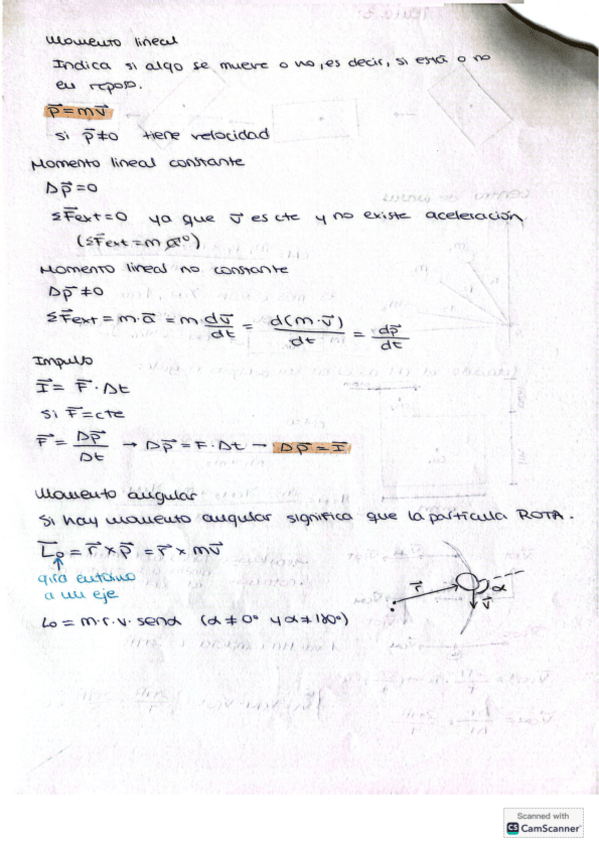 Momento lineal
Indica si algo se mueve o no, es decir, si está o no
en reposo.
p⃗ = mv⃗
si p⃗ ≠ 0 tiene velocidad
Momento lineal constante
Δp⃗ = 0
ΣF⃗ext = 0 ya que v⃗ es cte y no existe aceleración
(ΣF⃗ext = m a⃗⁰)
Momento lineal no constante
Δp⃗ ≠ 0
ΣF⃗ext = m·a⃗ = m·dv⃗/dt = d(m·v⃗)/dt = dp⃗/dt
Impulso
I⃗ = F⃗·Δt
si F⃗ = cte
F⃗ = Δp⃗/Δt → Δp⃗ = F·Δt → Δp⃗ = I⃗
Momento angular
Si hay momento angular significa que la partícula ROTA.
L⃗o = r⃗ × p⃗ = r⃗ × mv⃗
gira entorno
a un eje
r⃗ α v⃗
Lo = m·r·v·senα (α ≠ 0° y α ≠ 180°)
Scanned with
CS CamScanner